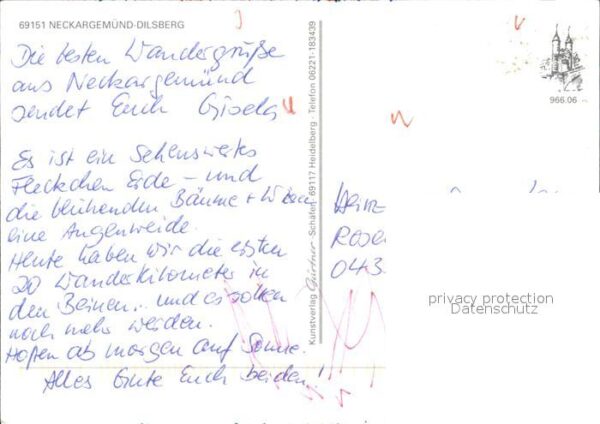 69151 NECKARGEMÜND-DILSBERG
Die besten Wandergrüße
aus Neckargemünd
sendet Euch Gisela
Es ist ein Sehenswertes
Fleckchen Erde – und
die blühenden Bäume +
eine Augenweide.
Heute haben wir die ersten
20 Wanderkilometer in
den Beinen, und es sollen
noch mehr werden.
Hoffen ab morgen auf Sonne.
Alles Gute Euch beiden!
Kunstverlag Gürtner Schäfer 69117 Heidelberg · Telefon 06221-183439
966.06
Heinz
Rosen
043
privacy protection
Datenschutz